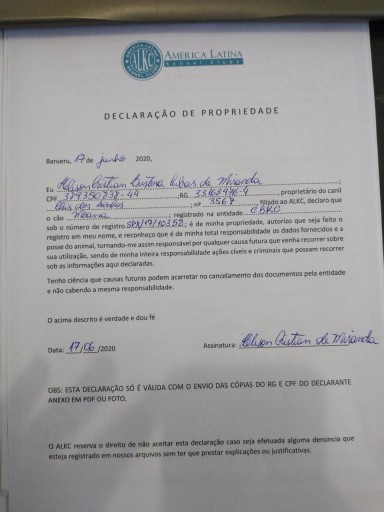 AMERICA LATINA
KENNEL CLUBE
ALKC
DECLARAÇÃO DE PROPRIEDADE
Barueru, 17 de junho 2020,
Eu Helison Cristian de Miranda
CPF RG proprietário do canil
Céu dos Sonhos ; nº 3567 , filiado ao ALKC, declaro que
o cão ; registrado na entidade CBKC
sob o número de registro SPX/19/10352; é de minha propriedade, autorizo que seja feito o
registro em meu nome, e reconheço que é de minha total responsabilidade os dados fornecidos e a
posse do animal, tornando-me assim responsável por qualquer causa futura que venha recorrer sobre
sua utilização, sendo de minha inteira responsabilidade ações cíveis e criminais que possam recorrer
sob as informações aqui declaradas.
Tenho ciência que causas futuras podem acarretar no cancelamento dos documentos pela entidade
e não cabendo a mesma responsabilidade.
O acima descrito é verdade e dou fé
Data: 17/06/2020
Assinatura: Helison Cristian de Miranda
OBS: ESTA DECLARAÇÃO SÓ É VÁLIDA COM O ENVIO DAS CÓPIAS DO RG E CPF DO DECLARANTE
ANEXO EM PDF OU FOTO.
O ALKC reserva o direito de não aceitar esta declaração caso seja efetuada alguma denúncia que
esteja registrado em nossos arquivos sem ter que prestar explicações ou justificativas.